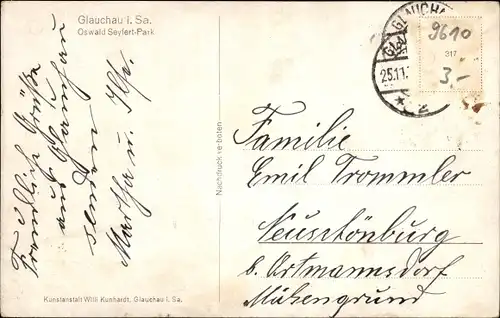 Glauchau i. Sa.
Oswald Seyfert-Park
Freundliche Grüße
aus Glauchau
senden
Martha u. Ilse.
Nachdruck verboten
GLAUCHAU
25.11.
* 2
9610
317
3.-
Familie
Emil Trommler
Neuschönburg
b. Ortmannsdorf
Mülsengrund
Kunstanstalt Willi Kunhardt, Glauchau i. Sa.